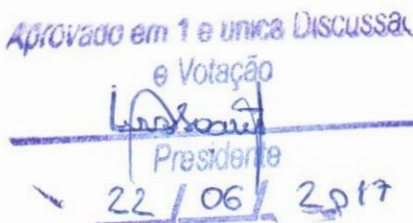 Aprovado em 1 e unica Discussão
e Votação
Presidente
22 / 06 / 2017